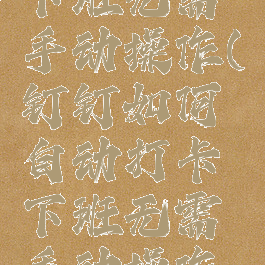 下班无需
手动操作(
钉钉如何
自动打卡
下班无需
手动操作